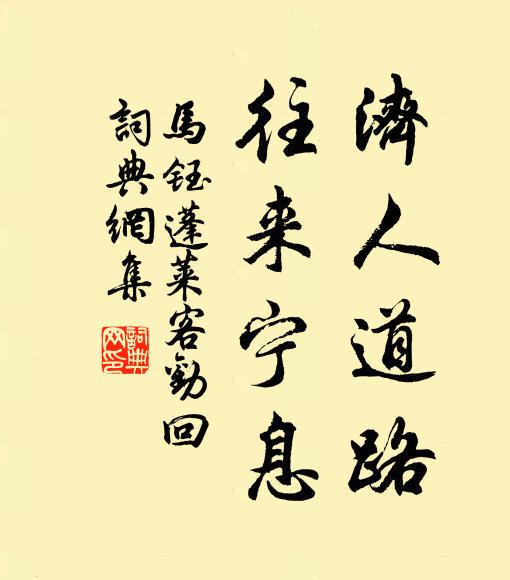 濟人道路
往来宁息
馬鈺蓬萊客勸回
詞典網集
詞典网印